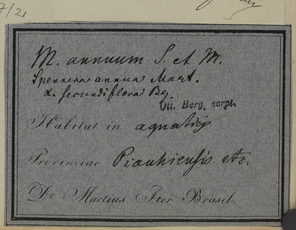 7/21
M. annuum S. et M.
Spennera annua Mart.
α. secundiflora Bg.
vi. Berg. scrpt.
Habitat in aquaticis
Provinciae Piauhiensis etc.
Dr. Martius Iter Brasil.